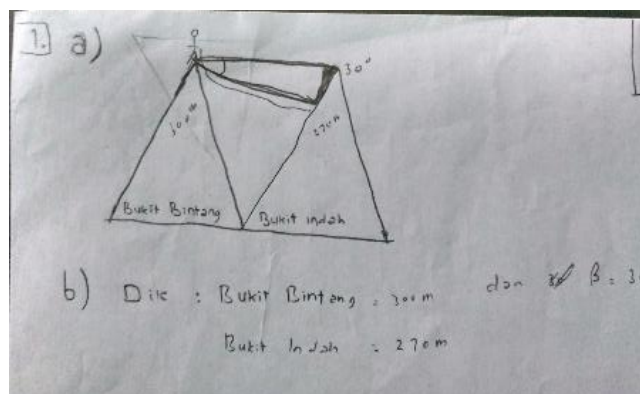 1. a)
30°
300 m
270m
Bukit Bintang
Bukit indah
b) Dik : Bukit Bintang = 300 m dan β = 3
Bukit Indah = 270 m